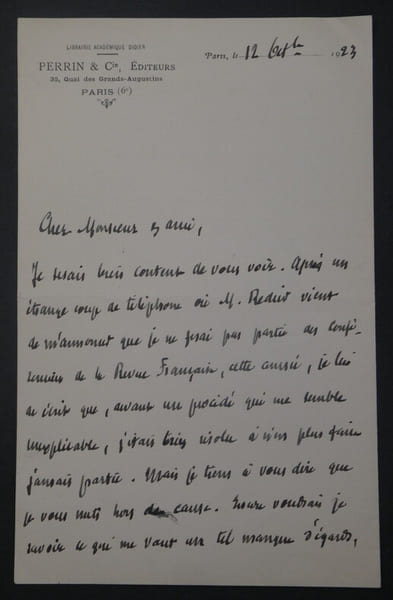 LIBRAIRIE ACADÉMIQUE DIDIER
PERRIN & Cie, ÉDITEURS
35, Quai des Grands-Augustins
PARIS (6e)
Paris, le 12 Octbre 1923
Cher Monsieur et ami,
Je serais bien content de vous voir. Après un
étrange coup de téléphone où M. Redier vient
de m'annoncer que je ne ferai pas partie des confé-
renciers de la Revue Française, cette année, je lui
ai écrit que, devant un procédé qui me semble
inexplicable, j'étais bien résolu à n'en plus faire
jamais partie. Mais je tiens à vous dire que
je vous mets hors de cause. Encore voudrais je
savoir ce qui me vaut un tel manque d'égards,